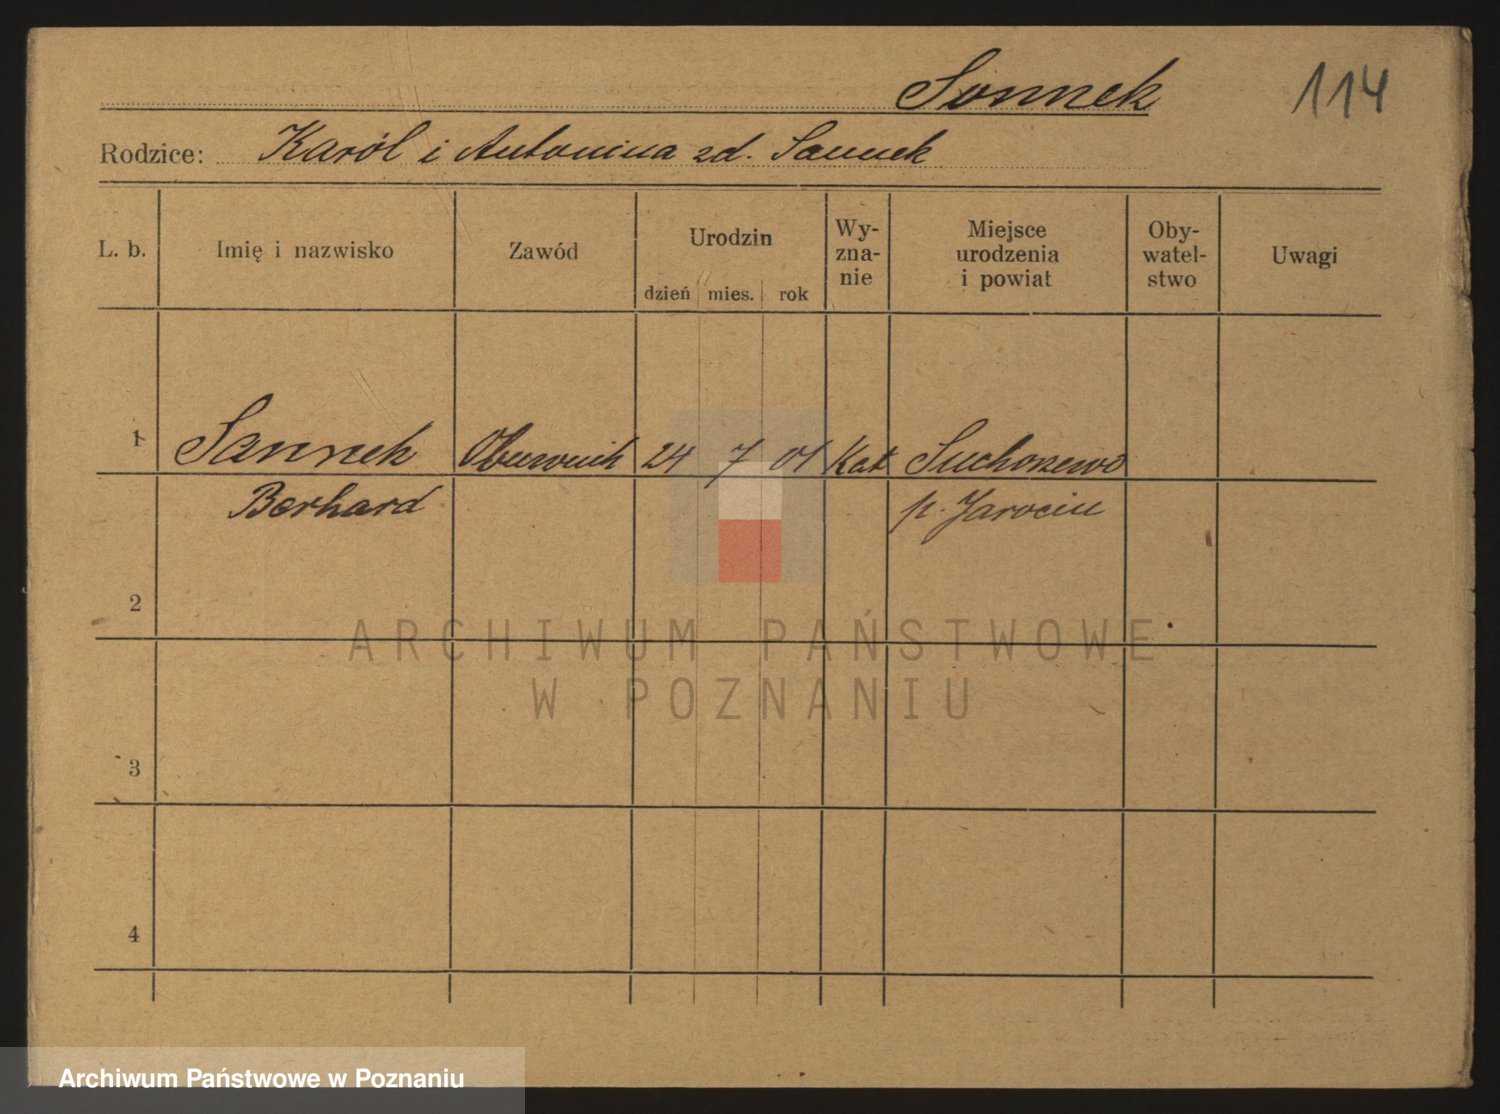 Sonnek
114
Rodzice: Karól i Antonina zd. Sannek
L. b. Imię i nazwisko Zawód Urodzin dzień mies. rok Wy-zna-nie Miejsce urodzenia i powiat Oby-watel-stwo Uwagi
1 Sannek 24 7 01 Kat
Berhard p. Jarocin
2
3
4
ARCHIWUM PAŃSTWOWE
W POZNANIU
Archiwum Państwowe w Poznaniu